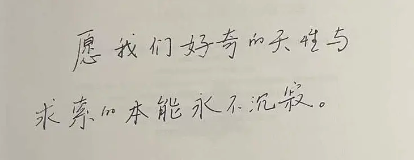 愿我们好奇的天性与
求索的本能永不沉寂。